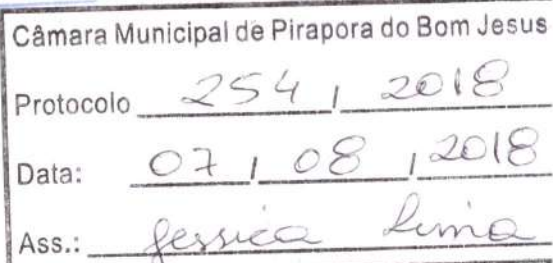 Câmara Municipal de Pirapora do Bom Jesus
Protocolo 254 / 2018
Data: 07 / 08 / 2018
Ass.: Jessica Lima